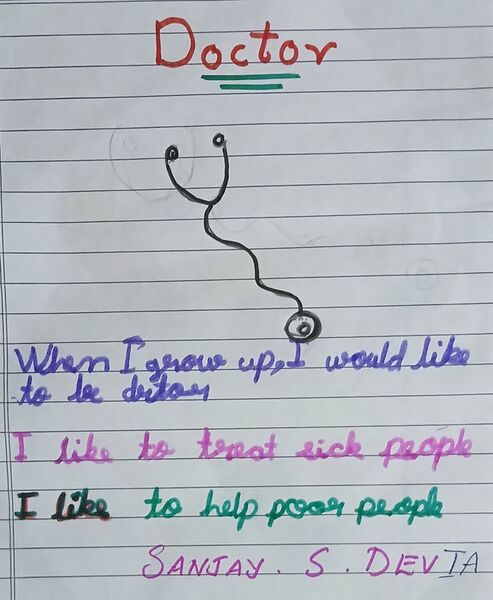 Doctor
When I grow up, I would like
to be doctor
I like to treat sick people
I like to help poor people
SANJAY. S. DEV IA